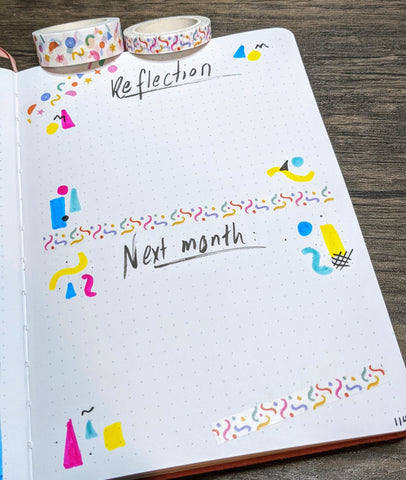 Reflection
Next month: